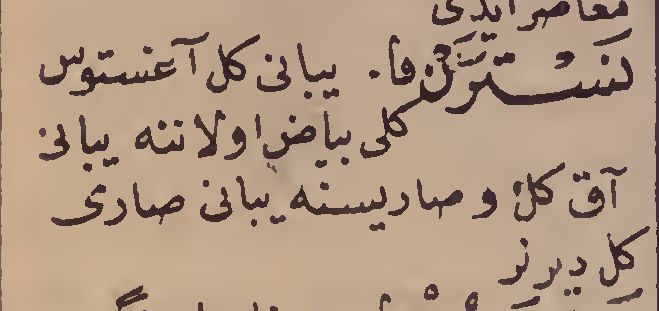 معاصر ایدی
نَسْتَرَنْ فا. یبانی كل آغستوس
كلی بیاض اولاننه یبانی
آق كل و صاریسنه یبانی صاری
كل دیرنر